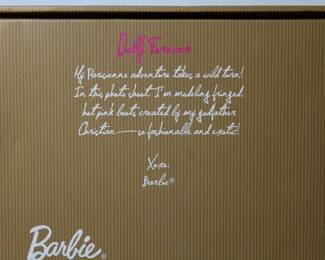 Dolly Forever
My Parisienne adventure takes a wild turn!
In this photo shoot, I'm modeling fringed
hot pink boots created by my godfather
Christian — so fashionable and exotic!
Xoxo,
Barbie®
Barbie®